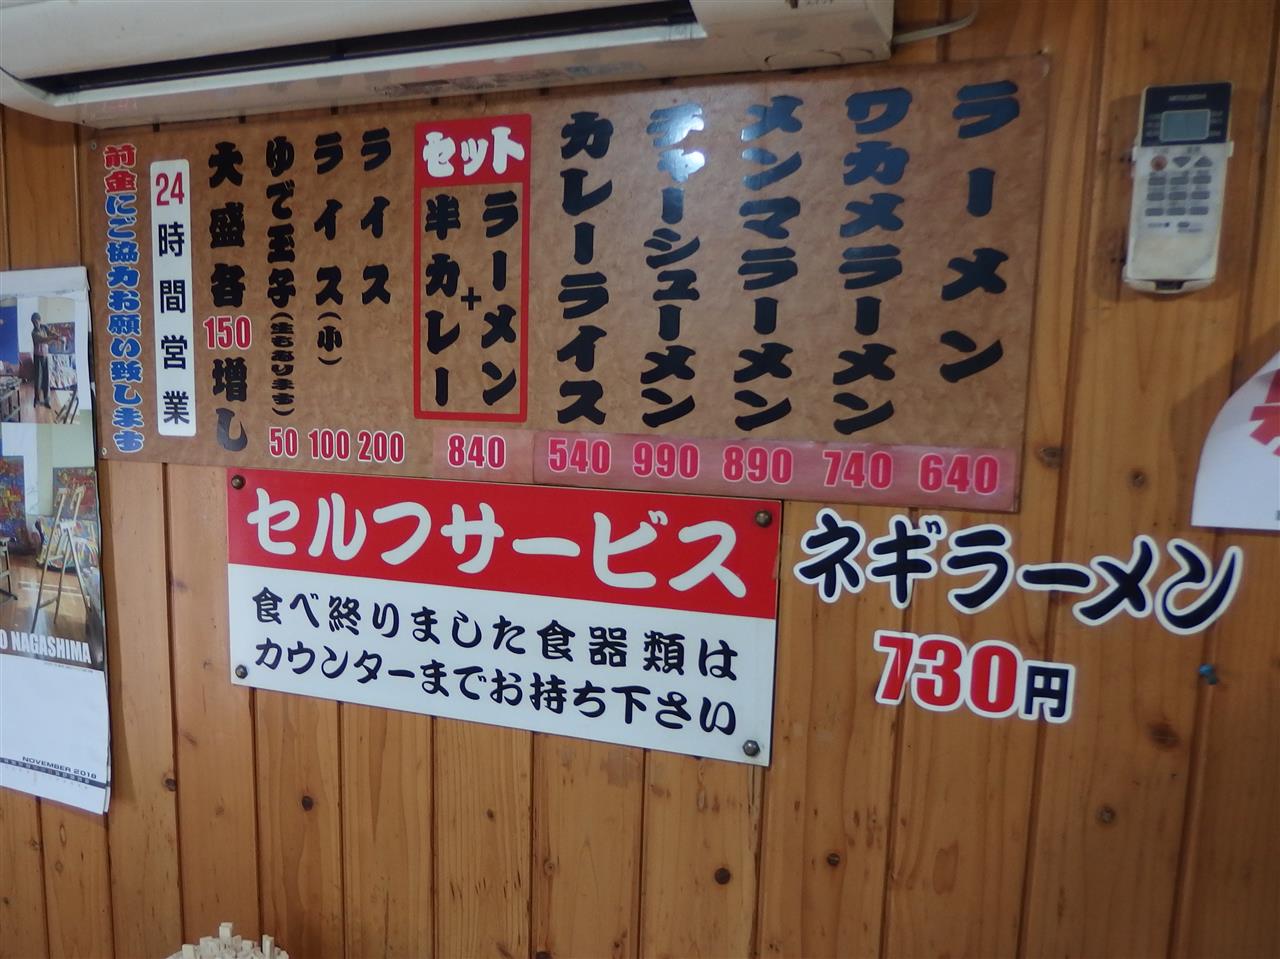 ラーメン
640
ワカメラーメン
740
メンマラーメン
890
チャーシューメン
990
カレーライス
540
セット
ラーメン
+
半カレー
840
ライス
200
ライス(小)
100
ゆで玉子(生もあります)
50
大盛各150増し
24時間営業
前金にご協力お願い致します
セルフサービス
食べ終りました食器類は
カウンターまでお持ち下さい
ネギラーメン
730円
O NAGASHIMA
NOVEMBER 2018